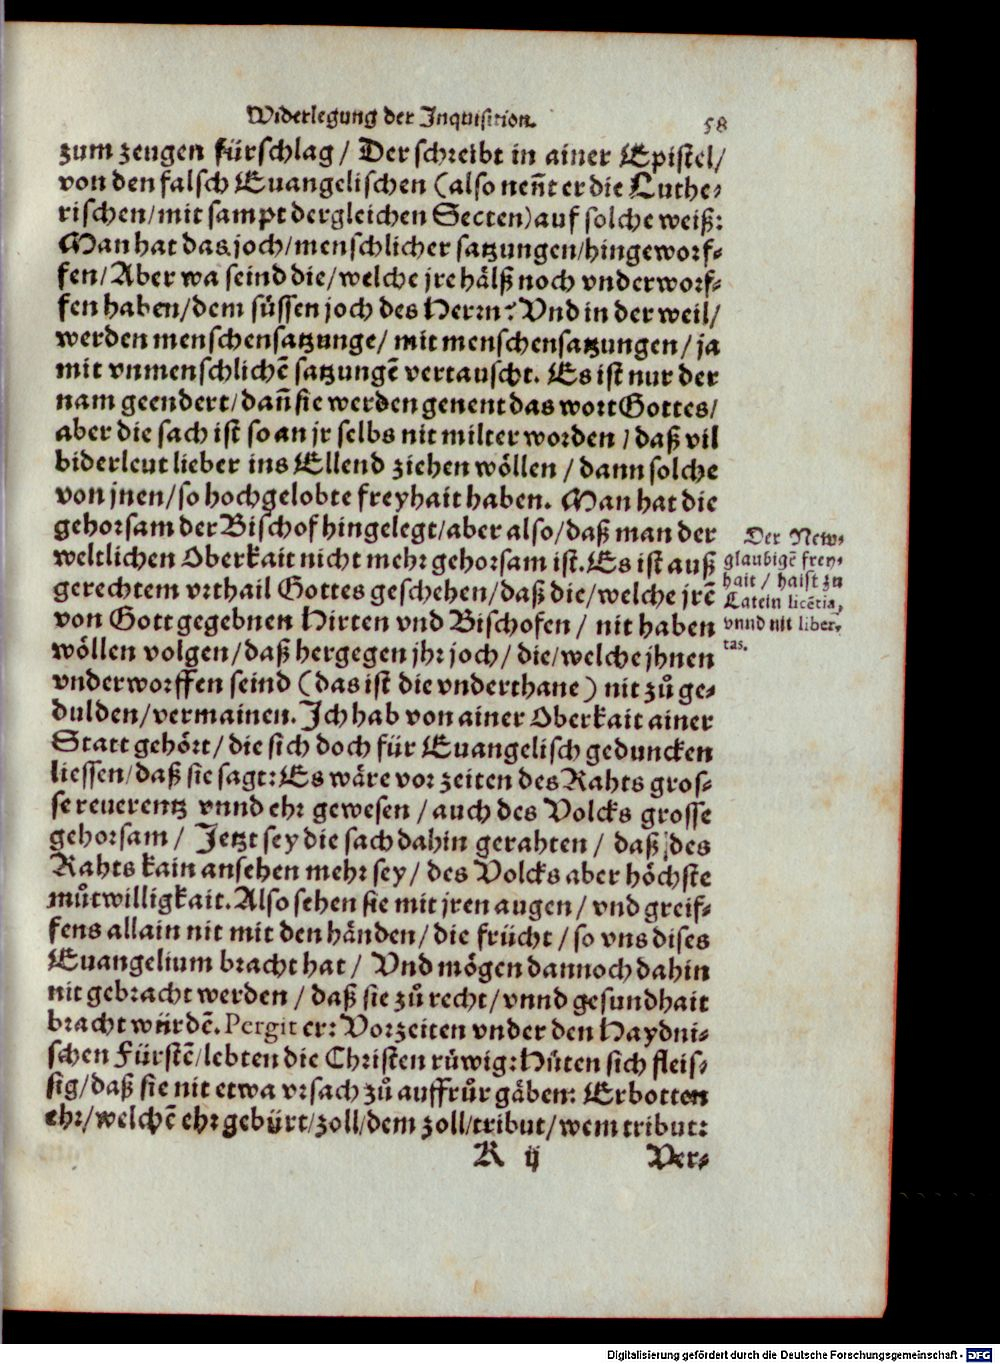 Widerlegung der Inquisition.
58
zum zeugen fürschlag / Der schreibt in ainer Epistel /
von den falsch Euangelischen (also neñt er die Luthe⸗
rischen / mit sampt dergleichen Secten) auf solche weiß:
Man hat das joch / menschlicher satzungen / hingeworf⸗
fen / Aber wa seind die / welche jre hälß noch vnderworf⸗
fen haben / dem süssen joch des Herrn? Vnd in der weil /
werden menschensatzunge / mit menschensatzungen / ja
mit vnmenschlichẽ satzungẽ vertauscht. Es ist nur der
nam geendert / dañ sie werden genent das wort Gottes /
aber die sach ist so an jr selbs nit milter worden / daß vil
biderleut lieber ins Ellend ziehen wöllen / dann solche
von jnen / so hochgelobte freyhait haben. Man hat die
gehorsam der Bischof hingelegt / aber also / daß man der
weltlichen Oberkait nicht mehr gehorsam ist. Es ist auß
gerechtem vrthail Gottes geschehen / daß die / welche jrẽ
von Gott gegebnen Hirten vnd Bischofen / nit haben
wöllen volgen / daß hergegen jhr joch / die / welche jhnen
vnderworffen seind (das ist die vnderthane) nit zů ge⸗
dulden / vermainen. Ich hab von ainer Oberkait ainer
Statt gehört / die sich doch für Euangelisch geduncken
liessen / daß sie sagt: Es wäre vor zeiten des Rahts gros⸗
se reuerentz vnnd ehr gewesen / auch des Volcks grosse
gehorsam / Jetzt sey die sach dahin gerahten / daß des
Rahts kain ansehen mehr sey / des Volcks aber höchste
můtwilligkait. Also sehen sie mit jren augen / vnd greif⸗
fens allain nit mit den händen / die frücht / so vns dises
Euangelium bracht hat / Vnd mögen dannoch dahin
nit gebracht werden / daß sie zů recht / vnnd gesundhait
bracht würdẽ. Pergit er: Vorzeiten vnder den Haydni⸗
schen Fürstẽ / lebten die Christen růwig: Hüten sich fleis⸗
sig / daß sie nit etwa vrsach zů auffrůr gäben: Erbotten
ehr / welchẽ ehr gebürt / zoll / dem zoll / tribut / wem tribut:
R ij
Ver⸗
Der New⸗
glaubigẽ frey⸗
hait / haist zu
Latein licẽtia,
vnnd nit liber⸗
tas.
Digitalisierung gefördert durch die Deutsche Forschungsgemeinschaft - DFG